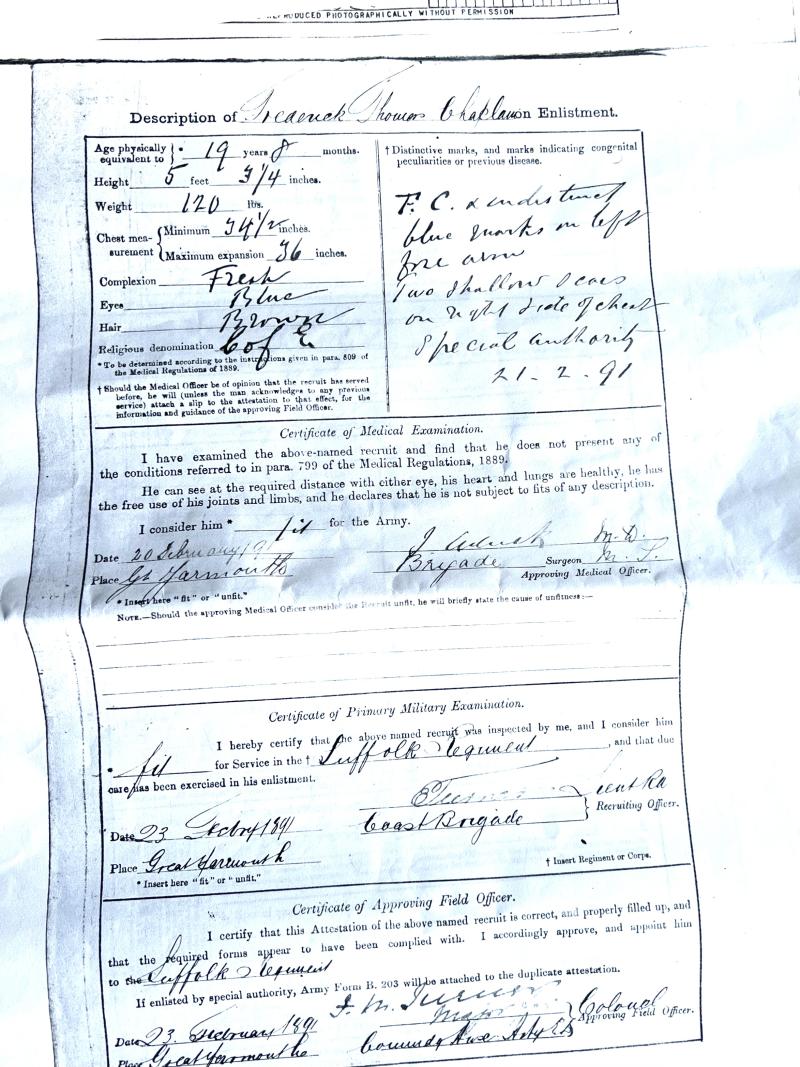 REPRODUCED PHOTOGRAPHICALLY WITHOUT PERMISSION
Description of Frederick Thomas Chaplin on Enlistment.
Age physically equivalent to * 19 years 8 months.
Height 5 feet 3 1/4 inches.
Weight 120 lbs.
Chest measurement Minimum 34 1/2 inches.
Maximum expansion 36 inches.
Complexion Fresh
Eyes Blue
Hair Brown
Religious denomination C of E
* To be determined according to the instructions given in para. 809 of
the Medical Regulations of 1889.
† Should the Medical Officer be of opinion that the recruit has served
before, he will (unless the man acknowledges to any previous
service) attach a slip to the attestation to that effect, for the
information and guidance of the approving Field Officer.
† Distinctive marks, and marks indicating congenital
peculiarities or previous disease.
F. C. & indistinct
blue marks on left
fore arm
Two shallow scars
on right side of chest
Special authority
21 . 2 . 91
Certificate of Medical Examination.
I have examined the above-named recruit and find that he does not present any of
the conditions referred to in para. 799 of the Medical Regulations, 1889.
He can see at the required distance with either eye, his heart and lungs are healthy, he has
the free use of his joints and limbs, and he declares that he is not subject to fits of any description.
I consider him * fit for the Army.
Date 20 February 91 M.D.
Place Gt Yarmouth Brigade Surgeon
Approving Medical Officer.
* Insert here "fit" or "unfit."
NOTE.—Should the approving Medical Officer consider the Recruit unfit, he will briefly state the cause of unfitness:—
Certificate of Primary Military Examination.
I hereby certify that the above named recruit was inspected by me, and I consider him
* fit for Service in the † Suffolk Regiment , and that due
care has been exercised in his enlistment.
Date 23 Febry 1891 Coast Brigade Recruiting Officer.
Place Great Yarmouth
† Insert Regiment or Corps.
* Insert here "fit" or "unfit."
Certificate of Approving Field Officer.
I certify that this Attestation of the above named recruit is correct, and properly filled up, and
that the required forms appear to have been complied with. I accordingly approve, and appoint him
to the Suffolk Regiment
If enlisted by special authority, Army Form B. 203 will be attached to the duplicate attestation.
Colonel
Approving Field Officer.
Date 23 February 1891
Place Great Yarmouth